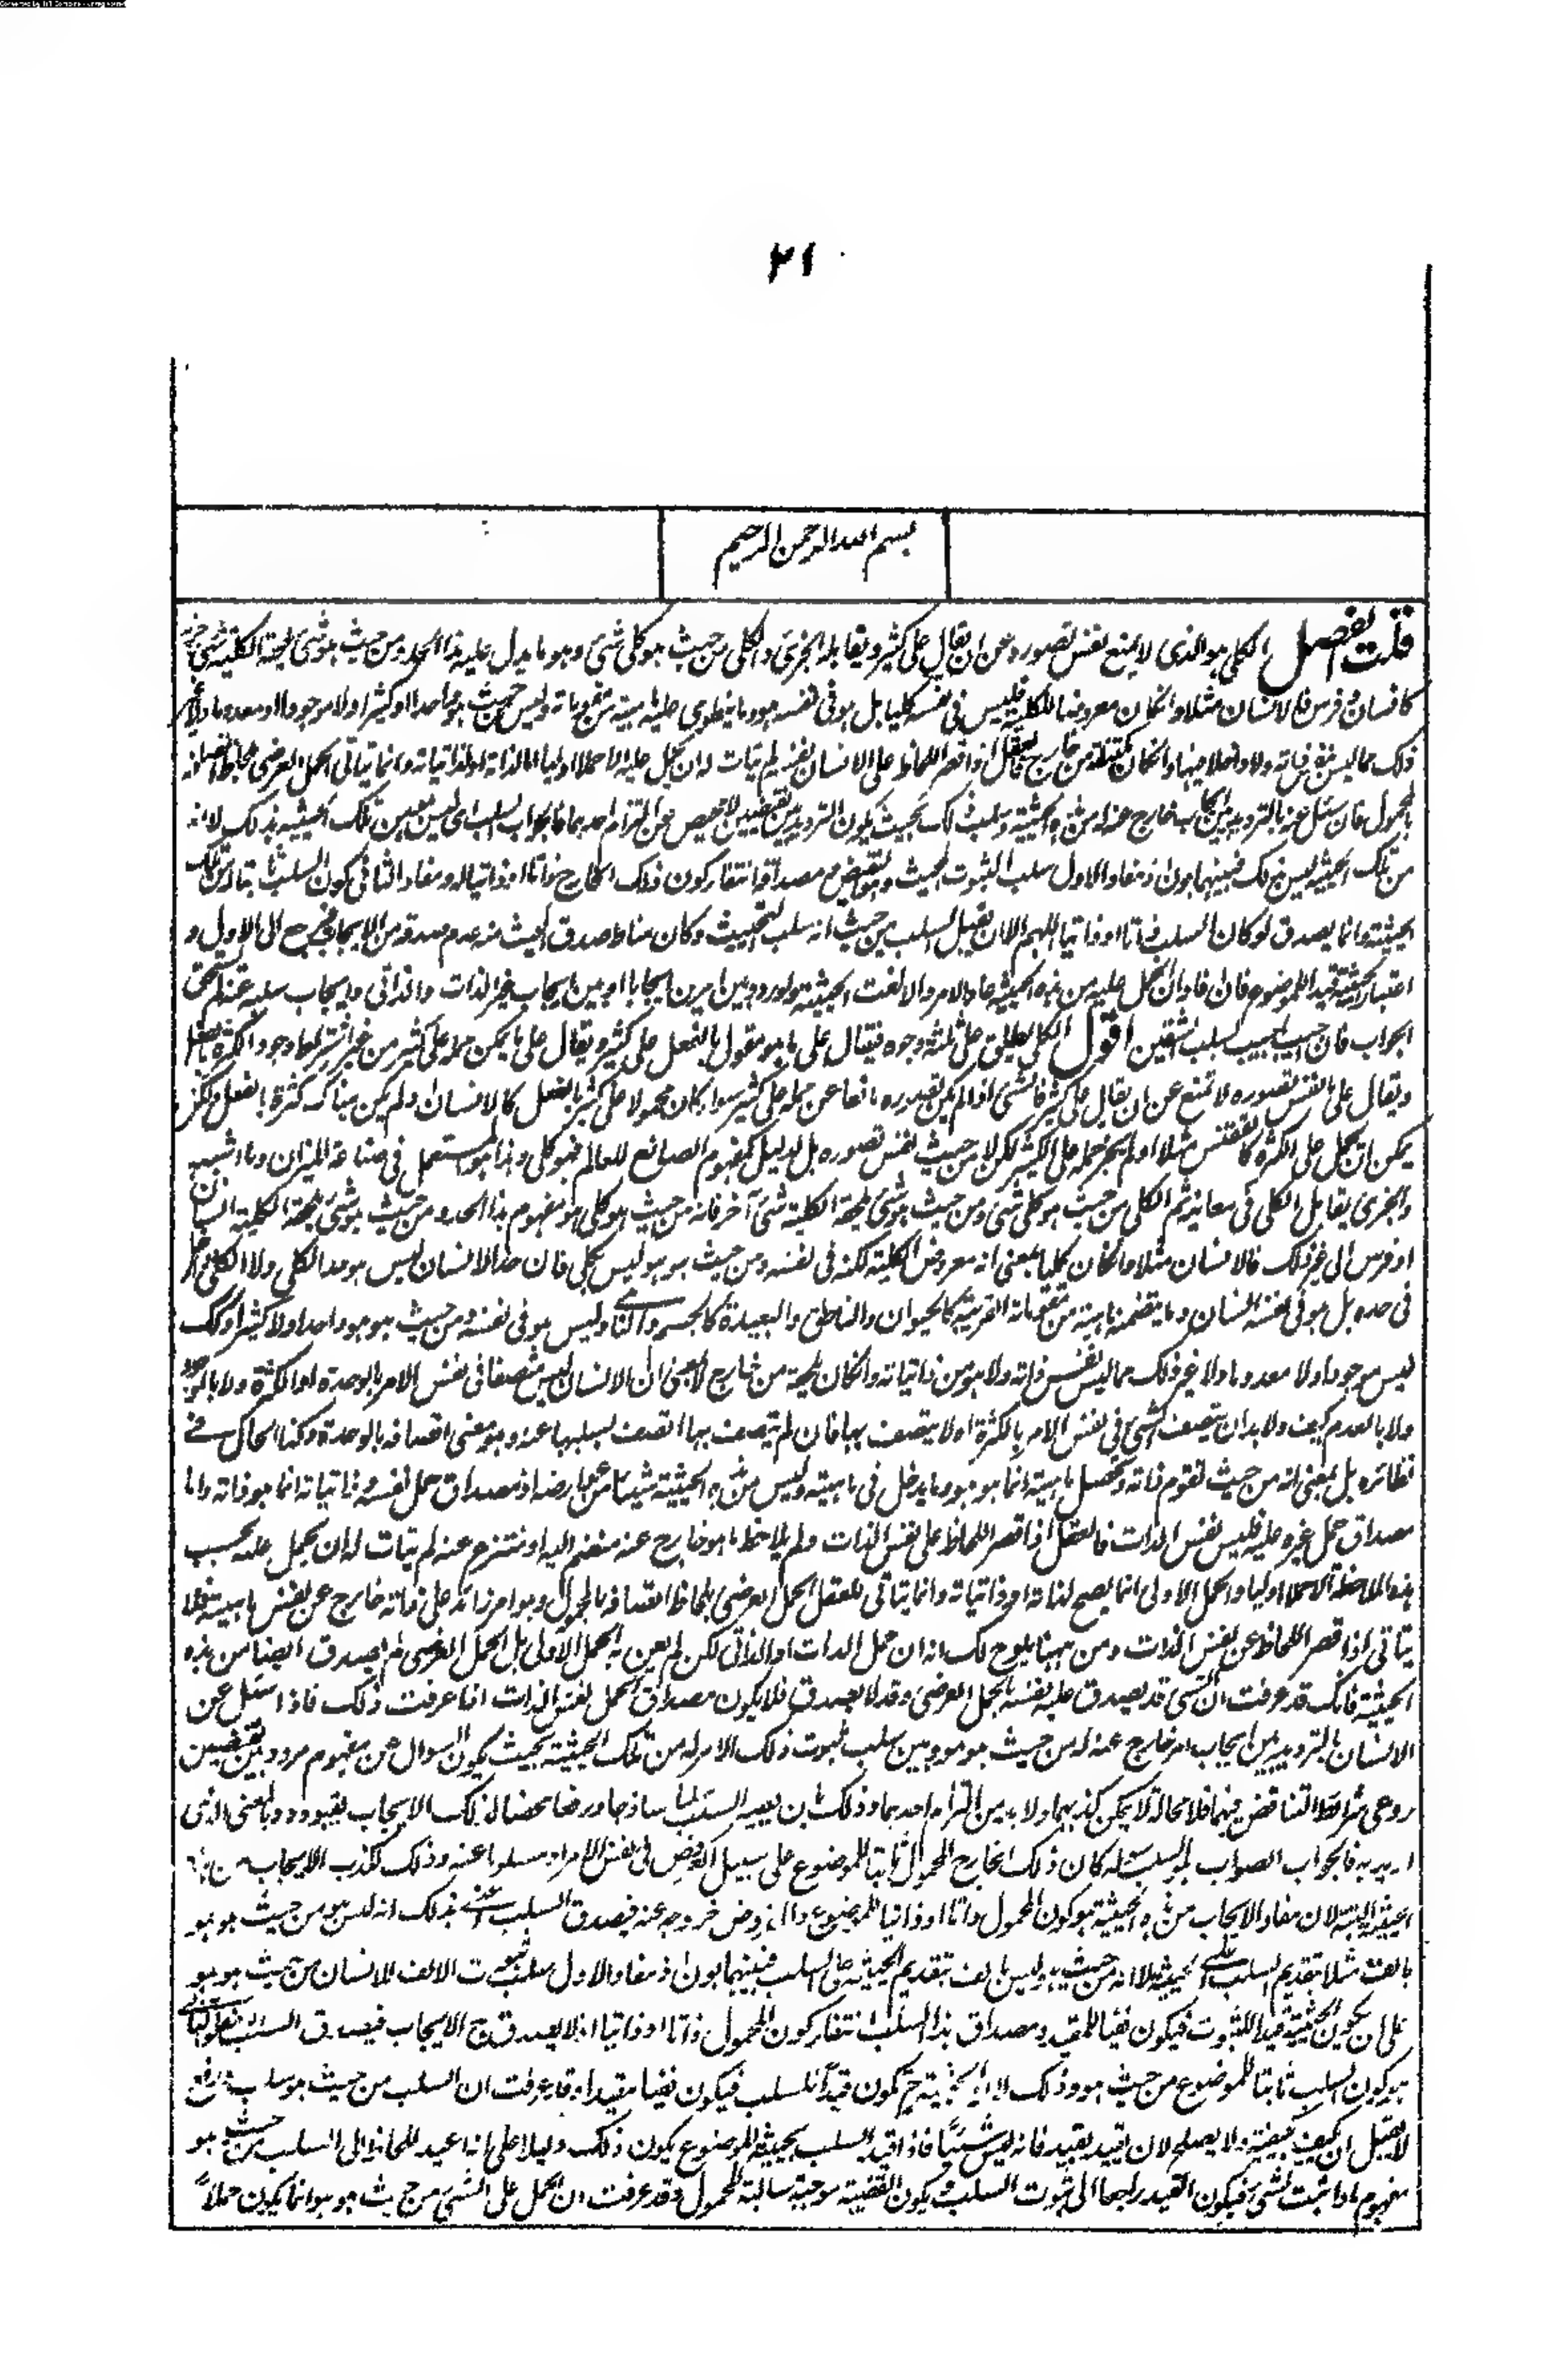 ٢١
بسم الله الرحمن الرحيم
قلت فصل الكلى هو الذى لا يمنع نفس تصوره عن ان يقال على كثير ويقابله الجزئى والكلى من حيث هو كلى شىء وهو ما يدل عليه هذا الحد ومن حيث هو شىء تلحقه الكلية شىء
كانسان او فرس فالانسان مثلا وان كان معروضا للكلية فليس فى نفسه كليا بل هو فى نفسه هو وما ينطوى عليه ماهيته من مقوماته وليس من حيث هو واحدا او كثيرا ولا موجودا او معدوما ولا غير
ذلك مما ليس نفس ذاته ولا داخلا فيها وان كان تلحقه من خارج فالعقل اذا قصر اللحاظ على الانسان نفسه لم يتأت له ان يحمل عليه الا حملا اوليا اما لذاته او لذاتياته وانما يتأتى الحمل العرضى بلحاظ اتصافه
بالمحمول فان سئل عنه بالترديد بين ايجاب خارج عنه له من هذه الحيثية وسلب ذلك بحيث يكون الترديد بين نقيضين لا محيص عن التزام احدهما فالجواب السلب اى ليس من تلك الحيثية بذلك لا انه
من تلك الحيثية ليس بذلك فبينهما بون اذ مفاد الاول سلب الثبوت المحيث وهو نقيض مصداقه انتفاء كون ذلك الخارج ذاتا او ذاتيا له ومفاد الثانى كون السلب ثابتا له من تلك
الحيثية وانما يصدق لو كان السلب ذاتا او ذاتيا اللهم الا ان يقبل السلب من حيث انه سلب التحييث وكان مناط صدق المحيث منه عدم صدقه من الايجاب فيرجع الى الاول و
اعتبار الحيثية قيدا للموضوع فان افاد ان الحمل عليه من هذه الحيثية عاد الامر والا لغت الحيثية ولو ردد بين امرين ايجابا او بين ايجاب غير الذات والذاتى وايجاب سلبه عنه لم يستحق
الجواب فان اجيب اجيب بسلب الشقين اقول الكلى يطلق على ثلثة وجوه فيقال على ما هو مقول بالفعل على كثير ويقال على ما يمكن حمله على كثير من غير اشتراط وجود الكثرة بالفعل
ويقال على ما نفس تصوره لا تمنع عن ان يقال على كثير فالشىء اذا لم يكن تصوره مانعا عن حمله على كثير سواء كان محمولا على كثير بالفعل كالانسان او لم يكن هناك كثرة بالفعل ولكن
يمكن ان يحمل على الكثرة كالققنس مثلا او لم يجز حمله على الكثير لكن لا من حيث نفس تصوره بل لدليل كمفهوم الصانع للعالم فهو كلى وهذا هو المستعمل فى صناعة الميزان وما اشبهه
والجزئى يقابل الكلى فى معانيه ثم الكلى من حيث هو كلى شىء ومن حيث هو شىء تلحقه الكلية شىء آخر فانه من حيث هو كلى هو مفهوم هذا الحد ومن حيث هو شىء تلحقه الكلية انسان
او فرس الى غير ذلك فالانسان مثلا وان كان كليا بمعنى انه معروض الكلية لكنه فى نفسه ومن حيث هو هو ليس بكلى فان حد الانسان ليس هو حد الكلى ولا الكلى داخل
فى حده بل هو فى نفسه انسان وما يتضمنه ماهيته من مقوماته القريبة كالحيوان والناطق والبعيدة كالجسم والنامى وليس هو فى نفسه ومن حيث هو هو واحدا ولا كثيرا وكذلك
ليس موجودا ولا معدوما ولا غير ذلك مما ليس نفس ذاته ولا هو من ذاتياته وان كان تلحقه من خارج لا بمعنى ان الانسان ليس متصفا فى نفس الامر بالوحدة او الكثرة ولا بالوجود
ولا بالعدم كيف ولا بد ان يتصف الشىء فى نفس الامر بالكثرة او لا يتصف بها فان لم يتصف بها اتصف بسلبها عنه وهو معنى اتصافه بالوحدة وكذا الحال فى
نظائره بل بمعنى انه من حيث تقوم ذاته وتحصل ماهيته انما هو هو وما يدخل فى ماهيته وليس من هذه الحيثية شيئا من عوارضه اذ مصداق حمل نفسه وذاتياته انما هو ذاته واما
مصداق حمل غيره عليه فليس نفس الذات فالعقل اذا قصر اللحاظ على نفس الذات ولم يلاحظ ما هو خارج عنه منضم اليه او منتزع عنه لم يتأت له ان يحمل عليه بحسب
هذه الملاحظة الا حملا اوليا والحمل الاولى انما يصح لذاته او ذاتياته وانما يتأتى للعقل الحمل العرضى بلحاظ اتصافه بالمحمول وهو امر زائد على ذاته خارج عن نفس ماهيته فلا
يتأتى اذا قصر اللحاظ عن نفس الذات ومن ههنا يلوح لك انه ان حمل الذات او الذاتى لكن لم يعن به الحمل الاولى بل الحمل العرضى لم يصدق ايضا من هذه
الحيثية فانك قد عرفت ان الشىء قد يصدق عليه نفسه بالحمل العرضى وقد لا يصدق فلا يكون مصداق الحمل نفس الذات اذا عرفت ذلك فاذا سئل عن
الانسان بالترديد بين ايجاب امر خارج عنه له من حيث هو هو وبين سلب ثبوت ذلك الامر له من تلك الحيثية بحيث يكون السوال عن مفهوم مردد بين نقيضين
روعى شرائط التناقض فيهما فلا محالة لا يمكن كذبهما ولا بد من التزام احدهما وذلك بان يعتبر السلب سلبا ساذجا ورفعا محضا لذلك الايجاب بقيوده وبالمعنى الذى
اريد به فالجواب الصواب هو السلب سواء كان ذلك الخارج المحمول ثابتا للموضوع على سبيل العروض فى نفس الامر او مسلوبا عنه وذلك لكذب الايجاب من هذه
الحيثية البتة لان مفاد الايجاب من هذه الحيثية هو كون المحمول ذاتا او ذاتيا للموضوع والمفروض خروجه عنه فيصدق السلب اعنى بذلك انه ليس هو من حيث هو هو
بالف مثلا بتقديم السلب على الحيثية لا انه من حيث هو ليس بالف بتقديم الحيثية على السلب فبينهما بون اذ مفاد الاول سلب ثبوت الالف للانسان من حيث هو هو
على ان يكون الحيثية قيدا للثبوت فيكون نفيا للمقيد ومصداق هذا السلب انتفاء كون المحمول ذاتا او ذاتيا اذ لا يصدق ح الايجاب فيصدق السلب ومفاد الثانى
هو كون السلب ثابتا للموضوع من حيث هو وذلك لان الحيثية ح تكون قيدا للسلب فيكون نفيا مقيدا وقد عرفت ان السلب من حيث هو سلب ورفع
لا يقبل ان يكيف بكيفية ولا يصلح لان يتقيد بقيد فانه ليس شيئا فاذا قيد السلب بحيثية الموضوع يكون ذلك دليلا على انه اعيد اللحاظ الى السلب من حيث هو
مفهوم ما واثبت لشىء فيكون القيد راجعا الى ثبوت السلب ويكون القضية موجبة سالبة المحمول وقد عرفت ان الحمل على الشىء من حيث هو هو انما يكون حملا